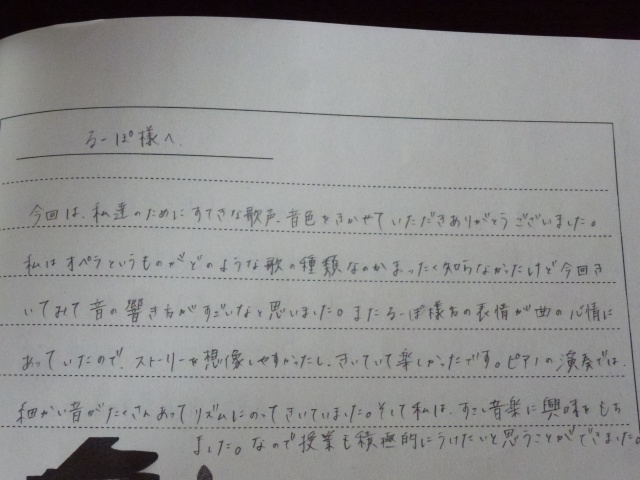 るーぱ様へ.
今回は、私達のためにすてきな歌声、音色をきかせていただきありがとうございました。
私はオペラというものがどのような歌の種類なのかまったく知らなかったけど今回き
いてみて音の響き方がすごいなと思いました。またるーぱ様方の表情が曲の心情に
あっていたので、ストーリーを想像しやすかったし、きいていて楽しかったです。ピアノの演奏では、
細かい音がたくさんあってリズムにのってきいていました。そして私は、すこし音楽に興味をもち
ました。なので授業も積極的にうけたいと思うことができました。